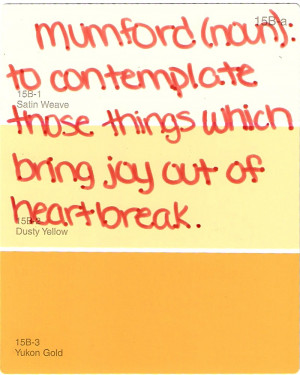 15B-a
mumford (noun):
to contemplate
15B-1
Satin Weave
those things which
bring joy out of
heartbreak.
15B-2
Dusty Yellow
15B-3
Yukon Gold